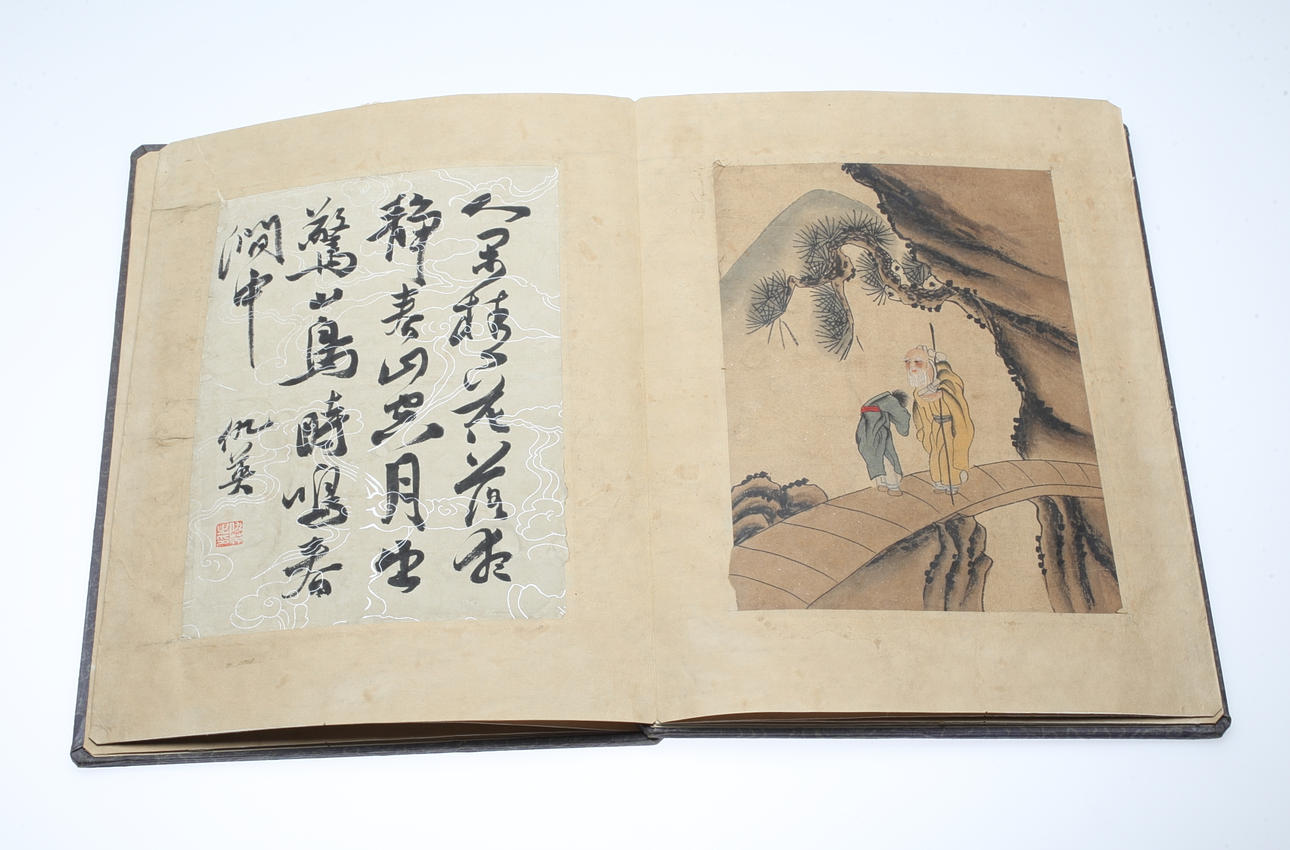 人閑桂花落夜
靜春山空月出
驚山鳥時鳴春
澗中
仇英